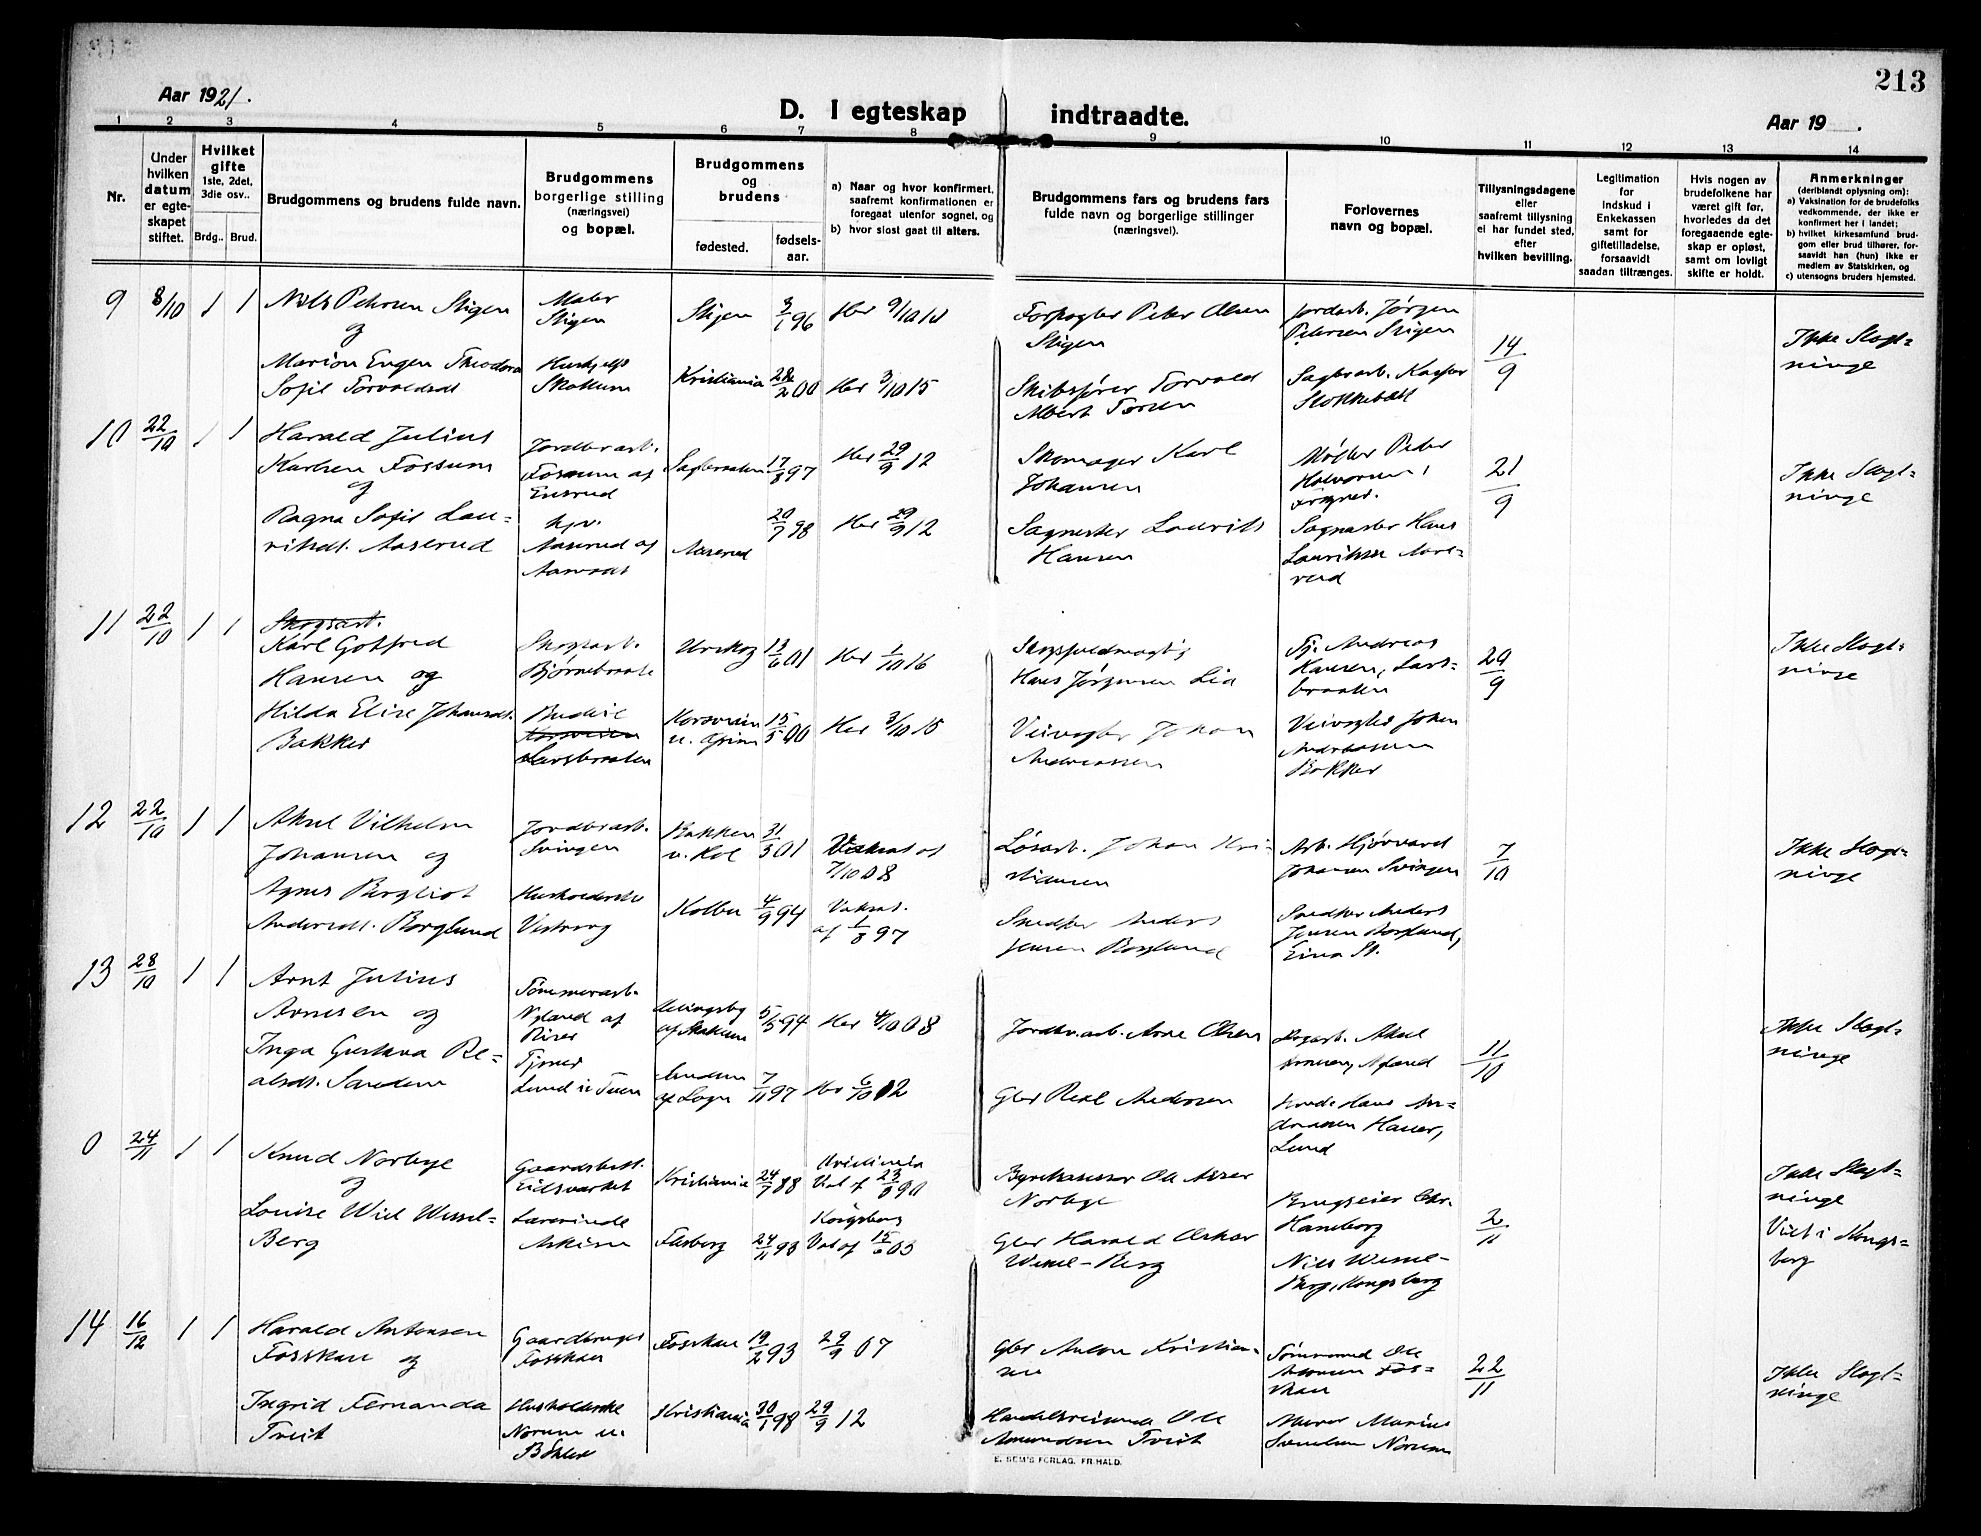 213
Aar 1921.
D. I egteskap indtraadte.
Aar 19 .
1 2 3 4 5 6 7 8 9 10 11 12 13 14
Nr.
Under hvilken datum er egteskapet stiftet.
Hvilket gifte 1ste, 2det, 3die osv..
Brdg.. Brud.
Brudgommens og brudens fulde navn.
Brudgommens borgerlige stilling (næringsvei) og bopæl.
Brudgommens og brudens
fødested.
fødselsaar.
a) Naar og hvor konfirmert, saafremt konfirmationen er foregaat utenfor sognet, og
b) hvor sidst gaat til alters.
Brudgommens fars og brudens fars fulde navn og borgerlige stillinger (næringsvei).
Forlovernes navn og bopæl.
Tillysningsdagene eller saafremt tillysning ei har fundet sted, efter hvilken bevilling.
Legitimation for indskud i Enkekassen samt for giftetilladelse, forsaavidt saadan tiltrænges.
Hvis nogen av brudefolkene har været gift før, hvorledes da det foregaaende egteskap er opløst, samt om lovligt skifte er holdt.
Anmerkninger (deriblandt oplysning om):
a) Vaksination for de brudefolks vedkommende, der ikke er konfirmert her i landet;
b) hvilket kirkesamfund brudgom eller brud tilhører, forsaavidt han (hun) ikke er medlem av Statskirken, og
c) utensogns bruders hjemsted.
9 8/10 1 1
Nils Petersen Stigen
og
Marion Eugen Theodora
Sofie Torvaldsdt
Maler
Stigen
Skottum
Stigen 3/1 96 Her 9/10 10
Kristiania 28/2 00 Her 3/10 15
Forpagter Peter Olsen
Stigen
Skibsfører Torvald
Albert
Jordarb. Jørgen
Petersen Stigen
Sagbrarb.
14/9
Ikke Slægt-
ninge
10 22/10 1 1
Harald Julius
Karlsen Fossum
og
Ragna Sofie Lau-
ritsdt. Aaserud
Jordbrarb.
Fossum af
Ensrud
Aaserud af
Sagbraaten 17/8 97 Her 29/9 12
Aaserud 20/7 98 Her 29/9 12
Skomager Karl
Johansen
Sagmester Laurits
Hansen
Møller Peter
Halvorsen,
Sagmester Hans
Lauritsen Aase-
rud
21/9
Ikke Slægt-
ninge
11 22/10 1 1
Skogsarb.
Karl Gotfred
Hansen og
Hilda Elise Johansdt.
Bakker
Skogsarb.
Bjørnebraate
Budeie
Larsbraaten
Urskog 13/6 01 Her 1/10 16
15/5 00 Her 3/10 15
Skogsfuldmægtig
Hans Jørgensen Lia
Veivogter Johan
Andreassen
Andreas
Hansen, Lars-
braaten
Veivogter Johan
Andreassen
Bakker
29/9
Ikke Slægt-
ninge
12 22/10 1 1
Aksel Vilhelm
Johansen og
Agnes Bergliot
Andersdt. Berglund
Jordbrarb.
Svingen
Husholderske
Bakken
v. Kol 31/3 01 Vaksat af
7/10 08
Kolbu 4/9 94 Vaksat.
af 1/8 97
Løsarb. Johan Kri-
stiansen
Snedker Anders
Jensen Berglund
Arb. Hjørvard
Johansen Svingen
Snedker Anders
Jensen Berglund,
Eina St.
7/10
Ikke Slægt-
ninge
13 28/10 1 1
Arnt Julius
Arnesen og
Inga Gustava Re-
alsdt. Sanden
Tømmerarb.
Nyland af
Riser
Tjener
Lund
5/5 94 Her 4/10 08
7/11 97 Her 6/10 12
Jordbr.arb. Arne Olsen
Gbr Real Andersen
Aksel
Arnesen, Nyland
Hans An-
dreassen Hauer,
Lund
11/10
Ikke Slægt-
ninge
0 24/11 1 1
Knud Norbye
og
Louise Wiel Wessel-
Berg
Gaardsbest.
Eidsverket
Lærerinde
Askim
Kristiania 24/7 88 Kristiania
Val f 23/8 90
24/11 93 Kongsberg
Val af 15/6 03
Norbye
Gbr Harald Oskar
Wessel-Berg
Brugseier Chr.
Haneborg
Nils Wessel-
Berg, Kongsberg
2/11
Ikke Slægt-
ninge
Viet i Kongs-
berg
14 16/12 1 1
Harald Antonsen
Fosskau og
Ingrid Fernanda
Tveit
Gaardbruger
Fosskau
Husholderske
Norum
Fosskau 19/2 93 29/9 07
Kristiania 30/1 98 29/9 12
Gbr Anton Kristian-
sen
Handelsreisende Ole
Amundsen Tveit
Ole
Fos-
skau
Marius
Norum
22/11
Ikke Slægt-
ninge
E. SEM'S FORLAG. FR.HALD.